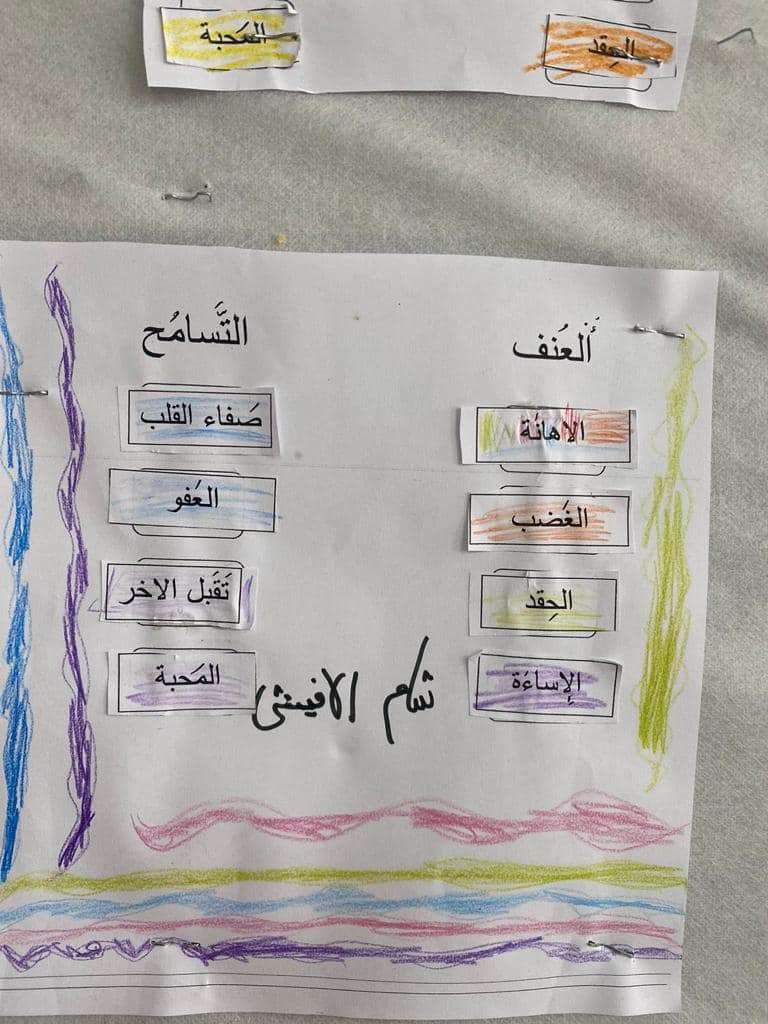 الحِقد المَحبة
ألعُنف التَّسامُح
الاهانَة صَفاء القلب
الغَضب العَفو
الحِقد تَقَبل الاخر
الإِساءَة المَحبة
شام الافينش